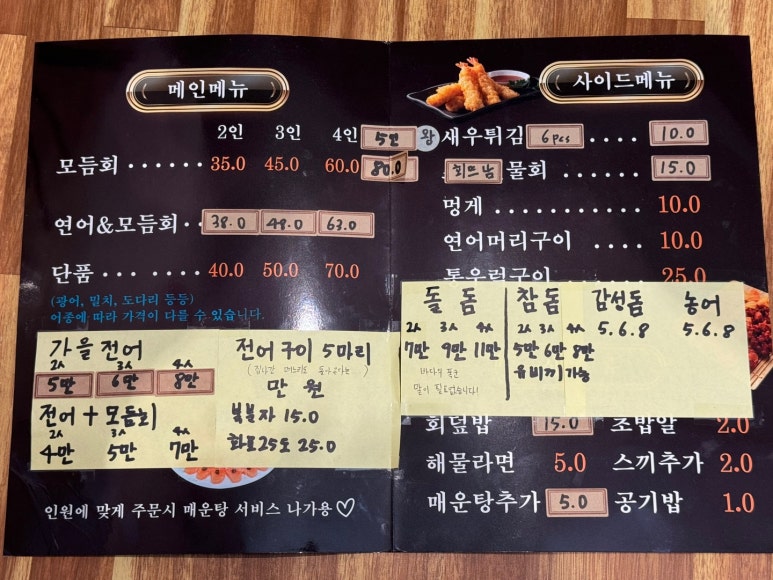 메인메뉴
2인 3인 4인 5인
모듬회 ...... 35.0 45.0 60.0 80.0
연어&모듬회.. 38.0 48.0 63.0
단품 ... .. 40.0 50.0 70.0
(광어, 밀치, 도다리 등등)
어종에 따라 가격이 다를 수 있습니다.
가을전어
2人 3人 4人
5만 6만 8만
전어 + 모듬회
2人 3人 4人
4만 5만 7만
전어구이 5마리
(집나간 며느리도 돌아온다는)
만 원
복분자 15.0
화요25도 25.0
인원에 맞게 주문시 매운탕 서비스 나가용♡
사이드메뉴
왕 새우튀김 6pcs .... 10.0
회뜨남 물회 15.0
멍게 ........... 10.0
연어머리구이 .... 10.0
통우럭구이 25.0
돌돔
2人 3人 4人
7만 9만 11만
말이 필요없습니다!
참돔
2人 3人 4人
5만 6만 8만
유비끼 가능
감성돔
5.6.8
농어
5.6.8
회덮밥 15.0 초밥알 2.0
해물라면 5.0 스끼추가 2.0
매운탕추가 5.0 공기밥 1.0